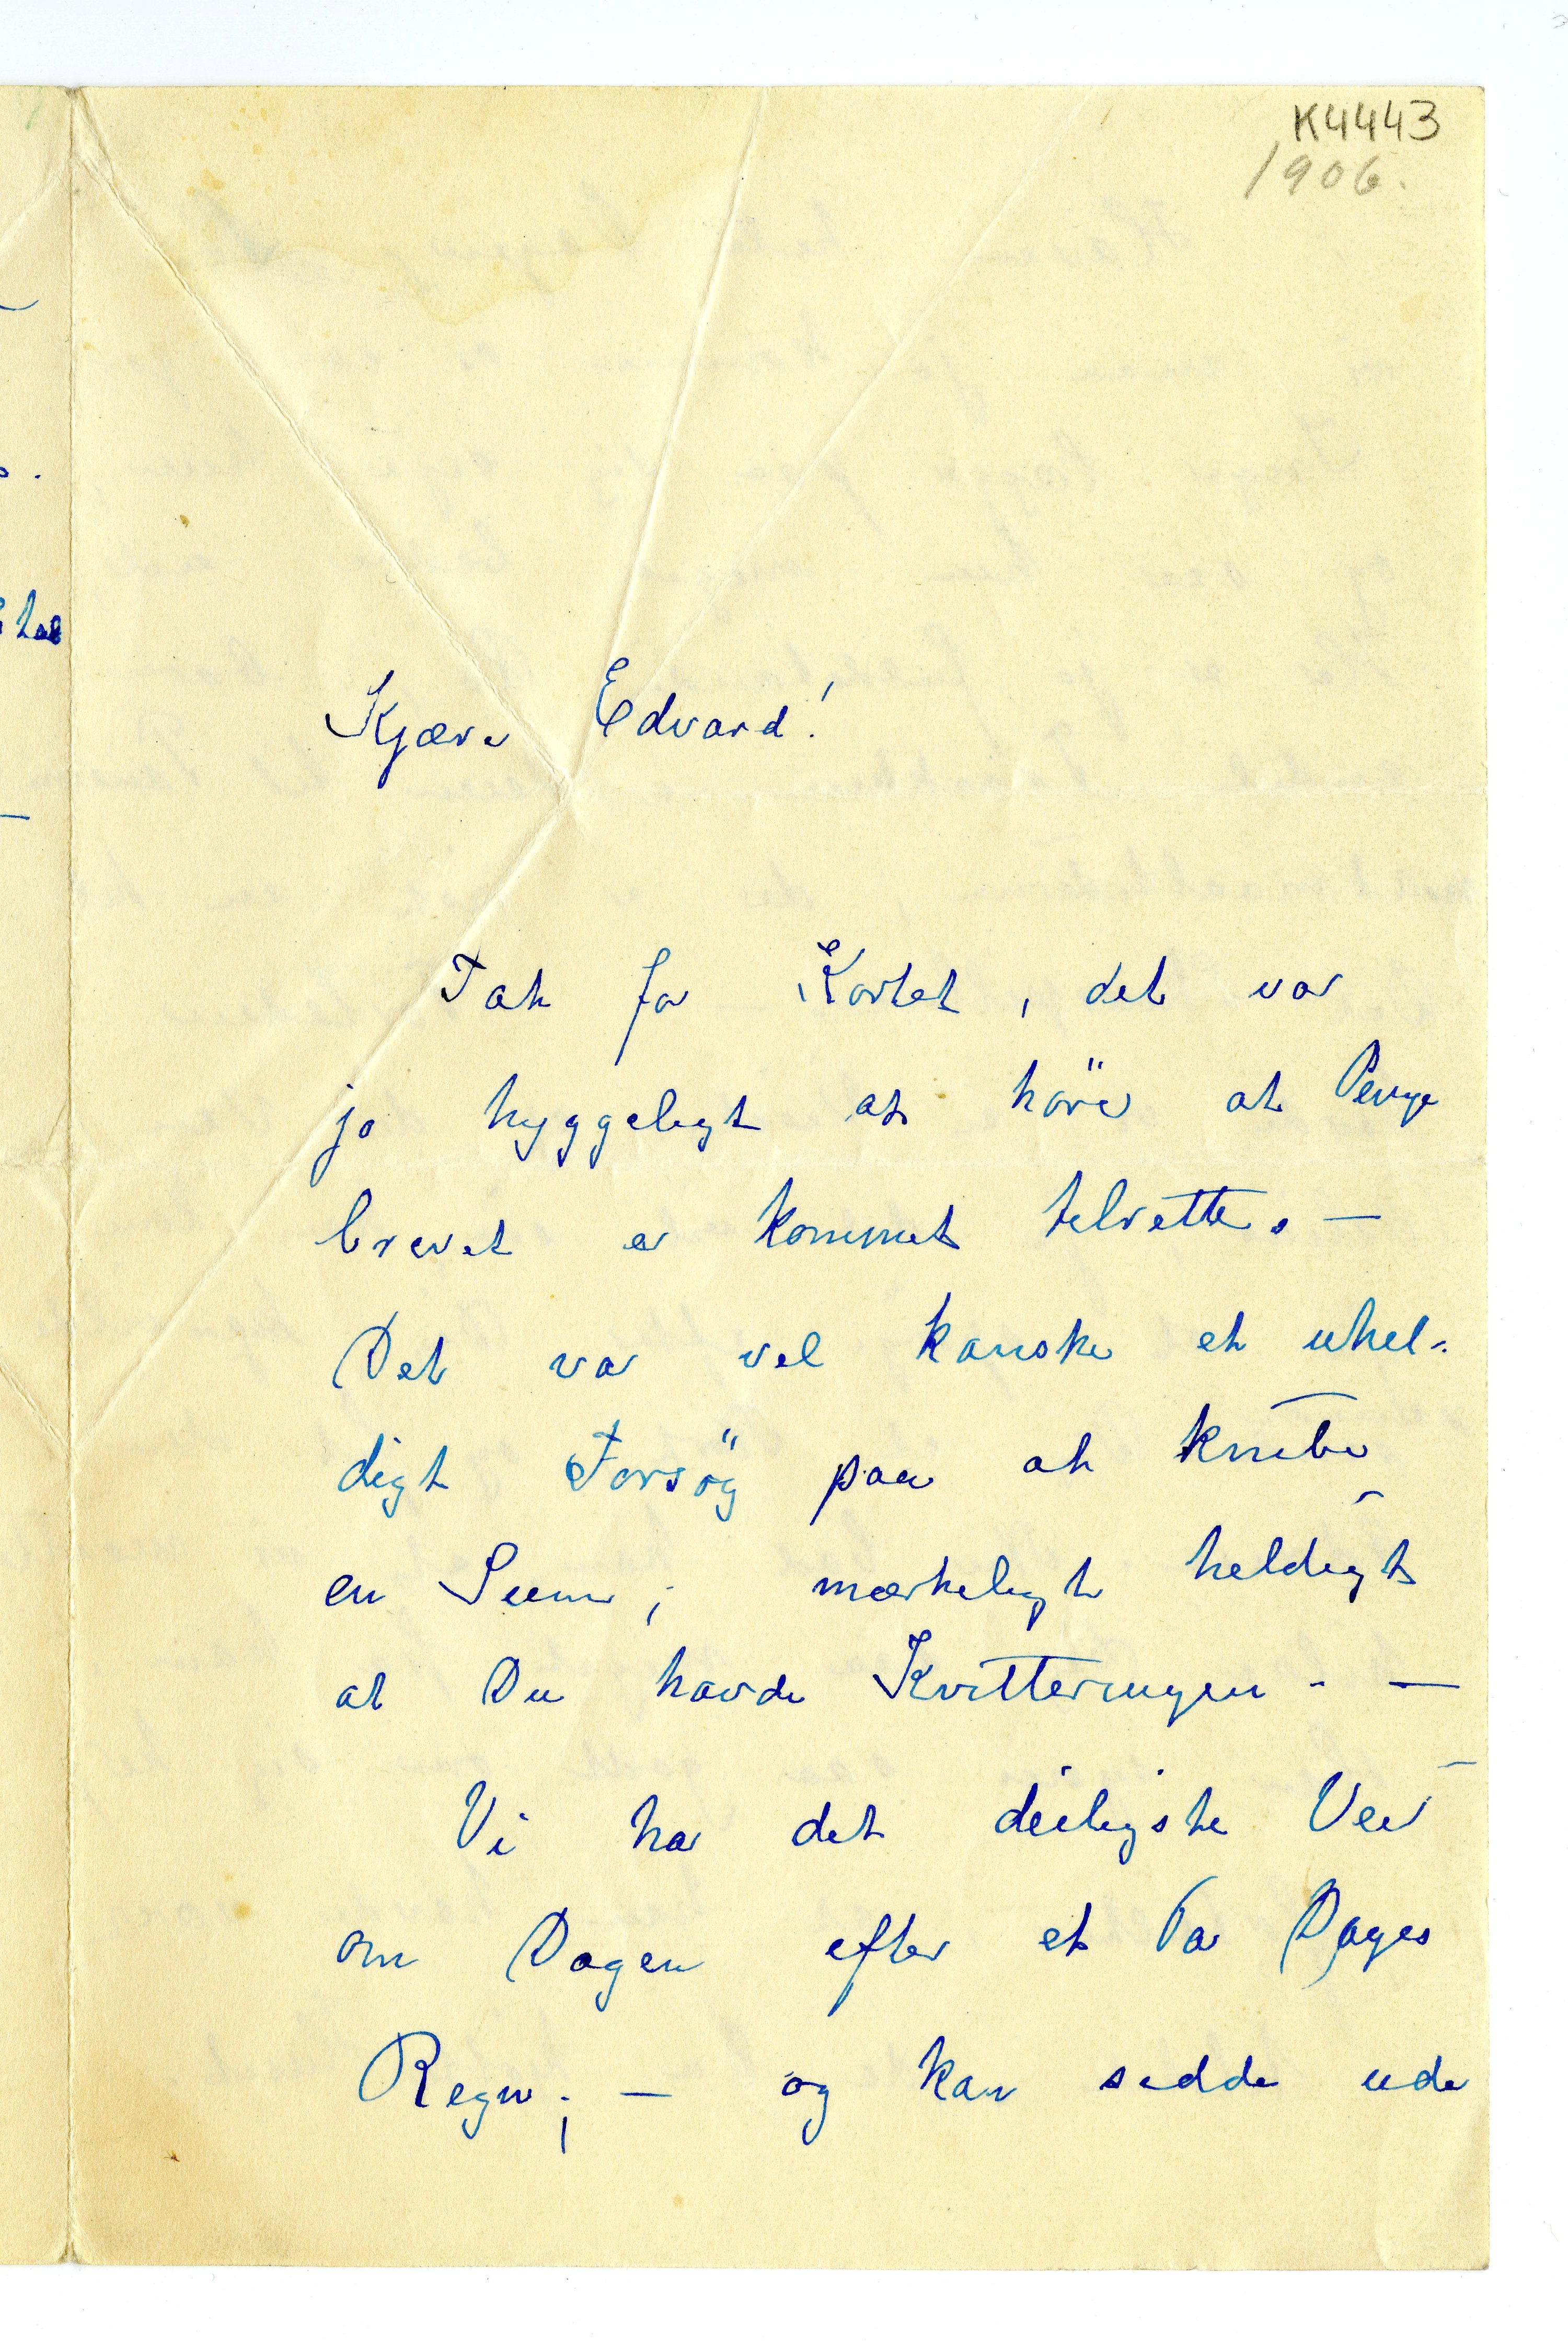 K4443
1906.
Kjære Edvard!
Tak for Kortet, det var
ja hyggeligt at höre at Penge
brevet er kommet tilrette. —
Det var vel kanske et uhel-
digt Forsög paa at knibe
en Sum; mærkeligt heldigt
at Du havde Kvitteringen. —
Vi har det deiligste Veir
om Dagen efter et Par Dages
Regn; — og kan sidde ude